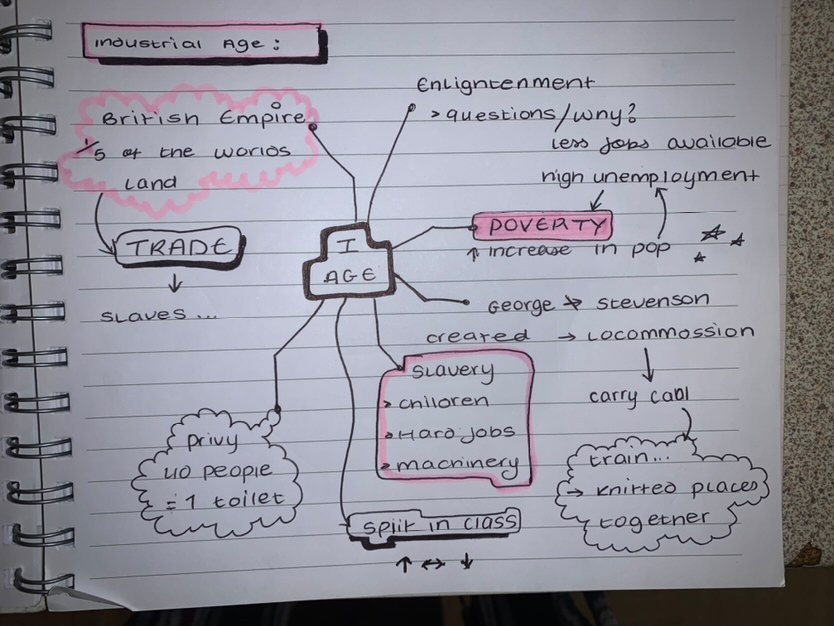 Industrial Age :
British Empire
1/5 of the worlds
land
TRADE
↓
slaves ...
Enlightenment
> questions/why?
less jobs available
high unemployment
POVERTY
↑ increase in pop
I
AGE
George → Stevenson
created → Locommossion
carry coal
train...
→ knitted places
together
slavery
> children
> Hard jobs
> machinery
privy
40 people
= 1 toilet
split in class
↑ ↔ ↓